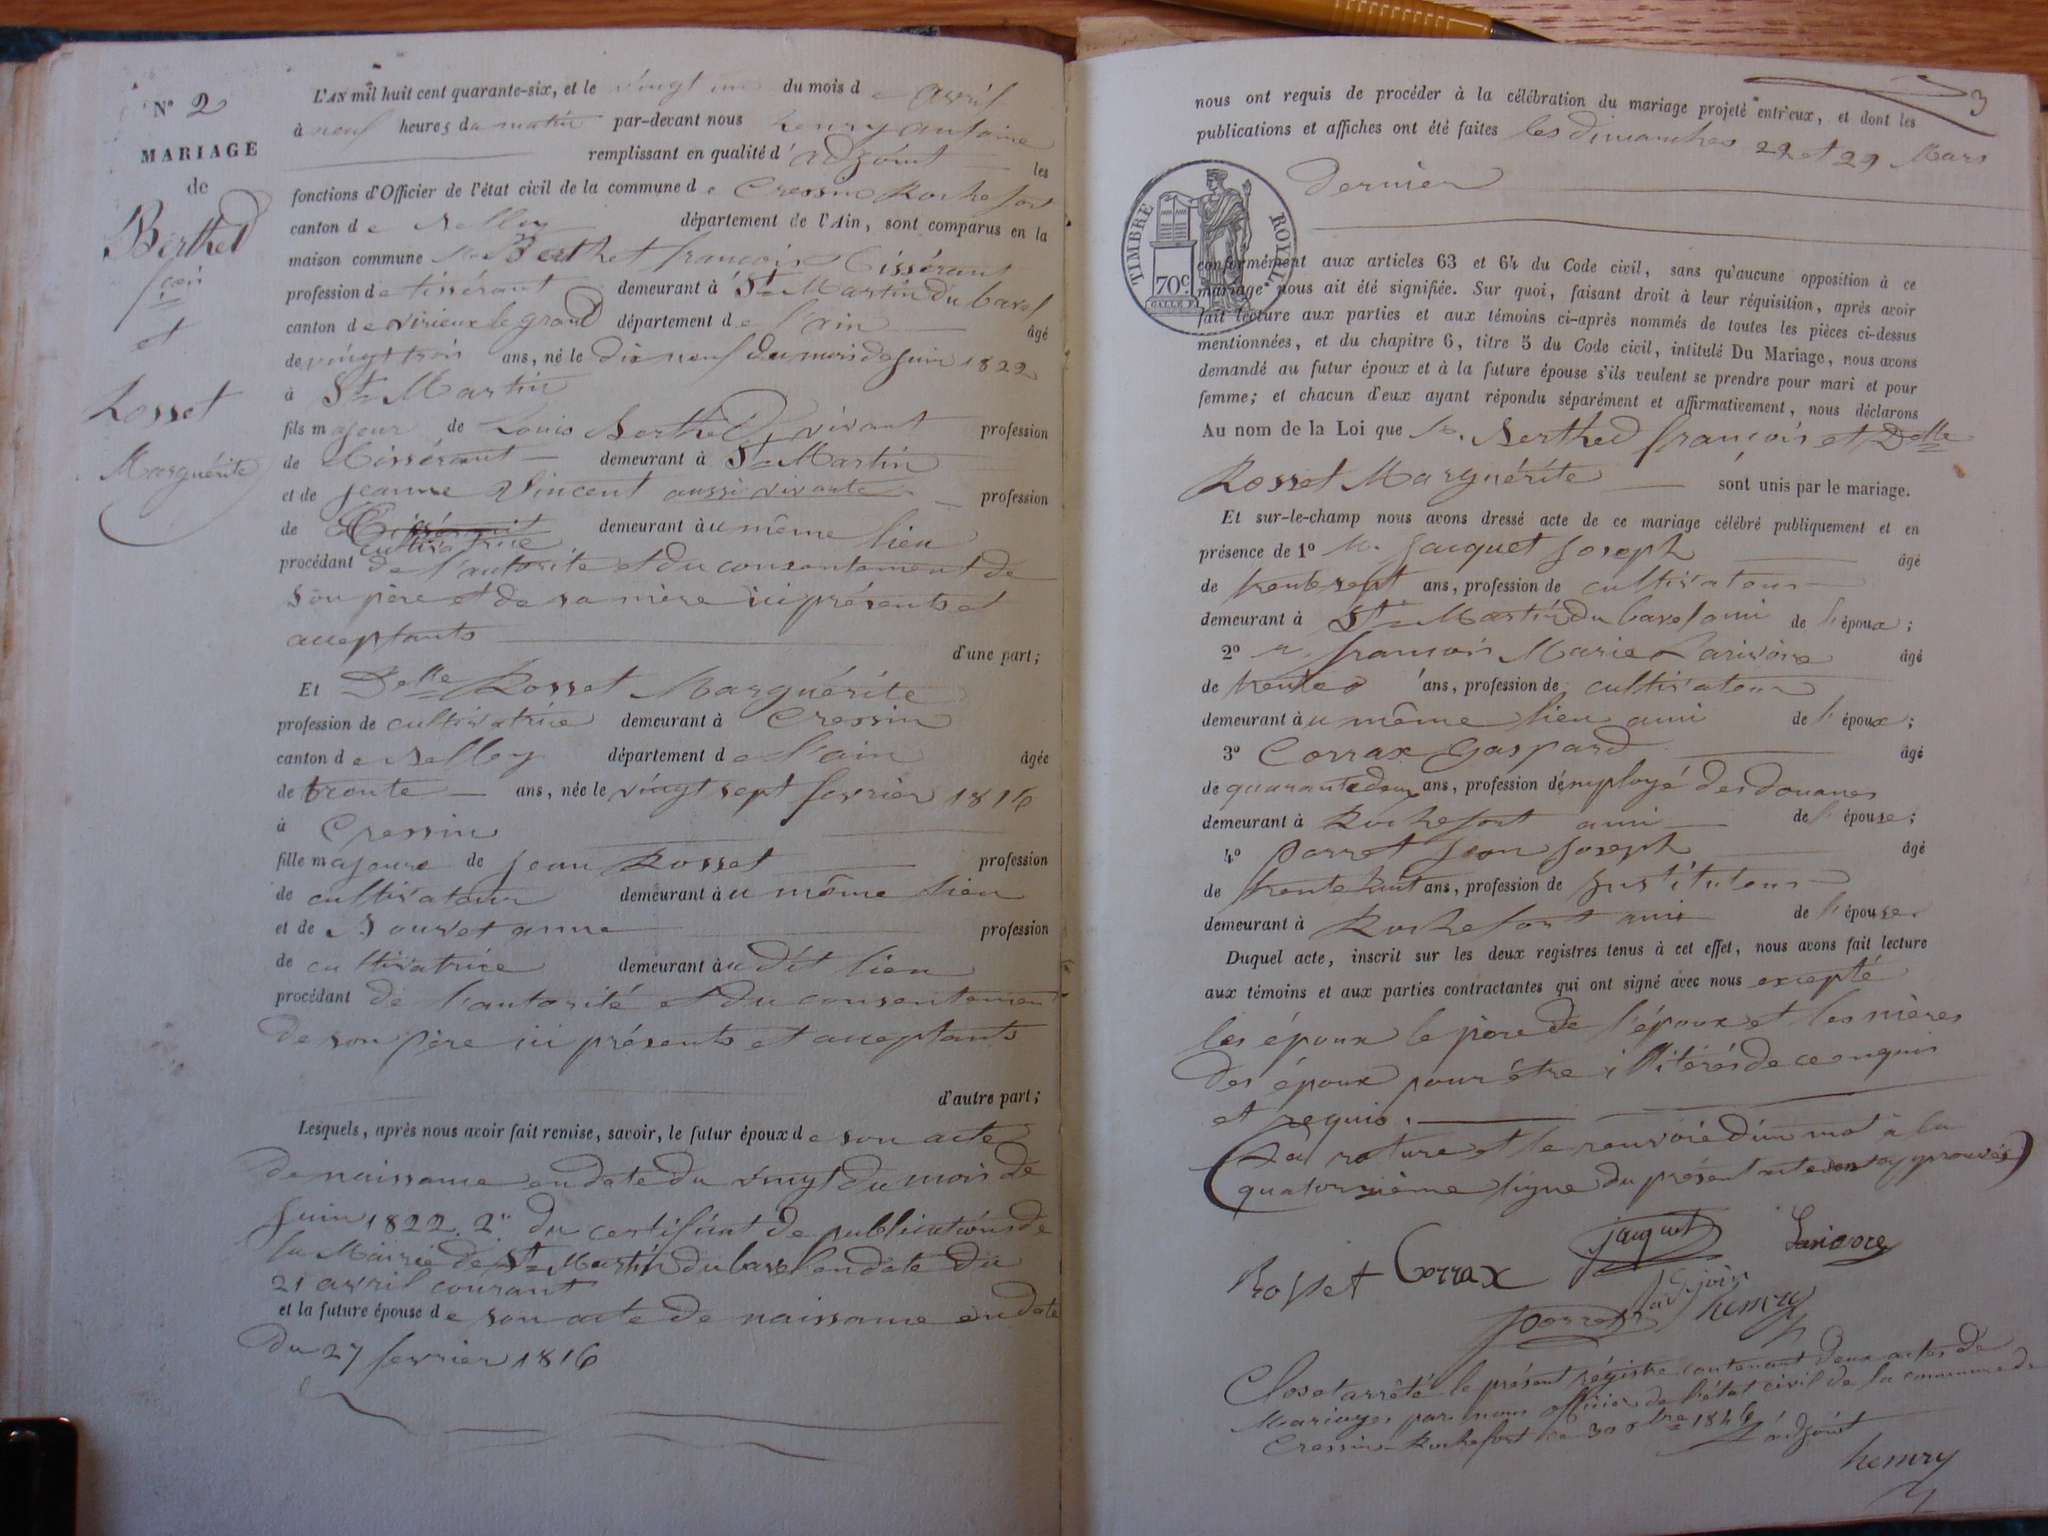 N° 2
MARIAGE
de
Berthet
françois
et
Rosset
Marguérite
L'AN mil huit cent quarante-six, et le vingt un du mois de avril
à neuf heures du matin par-devant nous henry antoine
remplissant en qualité d'adjoint les
fonctions d'Officier de l'état civil de la commune de Cressin Rochefort
canton de Belley département de l'Ain, sont comparus en la
maison commune Sr. Berthet françois Tissérant
profession de tissérant demeurant à St Martin du bavel
canton de virieux le grand département de l'ain âgé
de vingt trois ans, né le dix neuf du mois de Juin 1822
à St Martin
fils majeur de Louis Berthet vivant profession
de Tissérant demeurant à St Martin
et de jeanne Vincent aussi vivante profession
de Tissérant demeurant au même lieu
cultivatrice
procédant de l'autorité et du consentement de
son père et de sa mère ici présents et
acceptants
d'une part;
Et Delle Rosset Marguérite
profession de cultivatrice demeurant à Cressin
canton de Belley département de l'ain âgée
de trente ans, née le vingt sept fevrier 1816
à Cressin
fille majeure de Jean Rosset profession
de cultivateur demeurant au même lieu
et de Bouvet anne profession
de cultivatrice demeurant au dit lieu
procédant de l'autorité et du consentement
de son père ici présents et acceptants
d'autre part;
Lesquels, après nous avoir fait remise, savoir, le futur époux de son acte
de naissance en date du vingt du mois de
Juin 1822. 2° du certificat de publications de
la Mairie de St Martin du bavel en date du
21 avril courant
et la future épouse de son acte de naissance en date
du 27 fevrier 1816
3
nous ont requis de procéder à la célébration du mariage projeté entr'eux, et dont les
publications et affiches ont été faites les dimanches 22 et 29 Mars
dernier
TIMBRE ROYAL.
70c.
conformément aux articles 63 et 64 du Code civil, sans qu'aucune opposition à ce
mariage nous ait été signifiée. Sur quoi, faisant droit à leur réquisition, après avoir
fait lecture aux parties et aux témoins ci-après nommés de toutes les pièces ci-dessus
mentionnées, et du chapitre 6, titre 5 du Code civil, intitulé Du Mariage, nous avons
demandé au futur époux et à la future épouse s'ils veulent se prendre pour mari et pour
femme; et chacun d'eux ayant répondu séparément et affirmativement, nous déclarons
Au nom de la Loi que Sr. Berthet françois et Delle
Rosset Marguérite sont unis par le mariage.
Et sur-le-champ nous avons dressé acte de ce mariage célébré publiquement et en
présence de 1° Mr. Jacquet Joseph âgé
de trente sept ans, profession de cultivateur
demeurant à St Martin du bavel ami de l'époux;
2° françois Marie Larivoire âgé
de trente ans, profession de cultivateur
demeurant au même lieu ami de l'époux;
3° Corrax Gaspard âgé
de quarante deux ans, profession d'employé des douanes
demeurant à Rochefort ami de l'épouse;
4° Parret Jean Joseph âgé
de trente huit ans, profession de Instituteur
demeurant à Rochefort ami de l'épouse.
Duquel acte, inscrit sur les deux registres tenus à cet effet, nous avons fait lecture
aux témoins et aux parties contractantes qui ont signé avec nous excepté
les époux le père de l'époux et les mères
des époux pour être illitérés de ce enquis
et requis.
(La rature et le renvoie d'un mot à la
quatorzième ligne du présent acte approuvés)
Rosset Corrax jaquet Larivoire
Parret adjoint henry
Clos et arrêté le présent régistre contenant deux actes de
Mariages par nous officier de l'état civil de la commune de
Cressin Rochefort ce 30 Xbre 1846
L'adjoint
henry